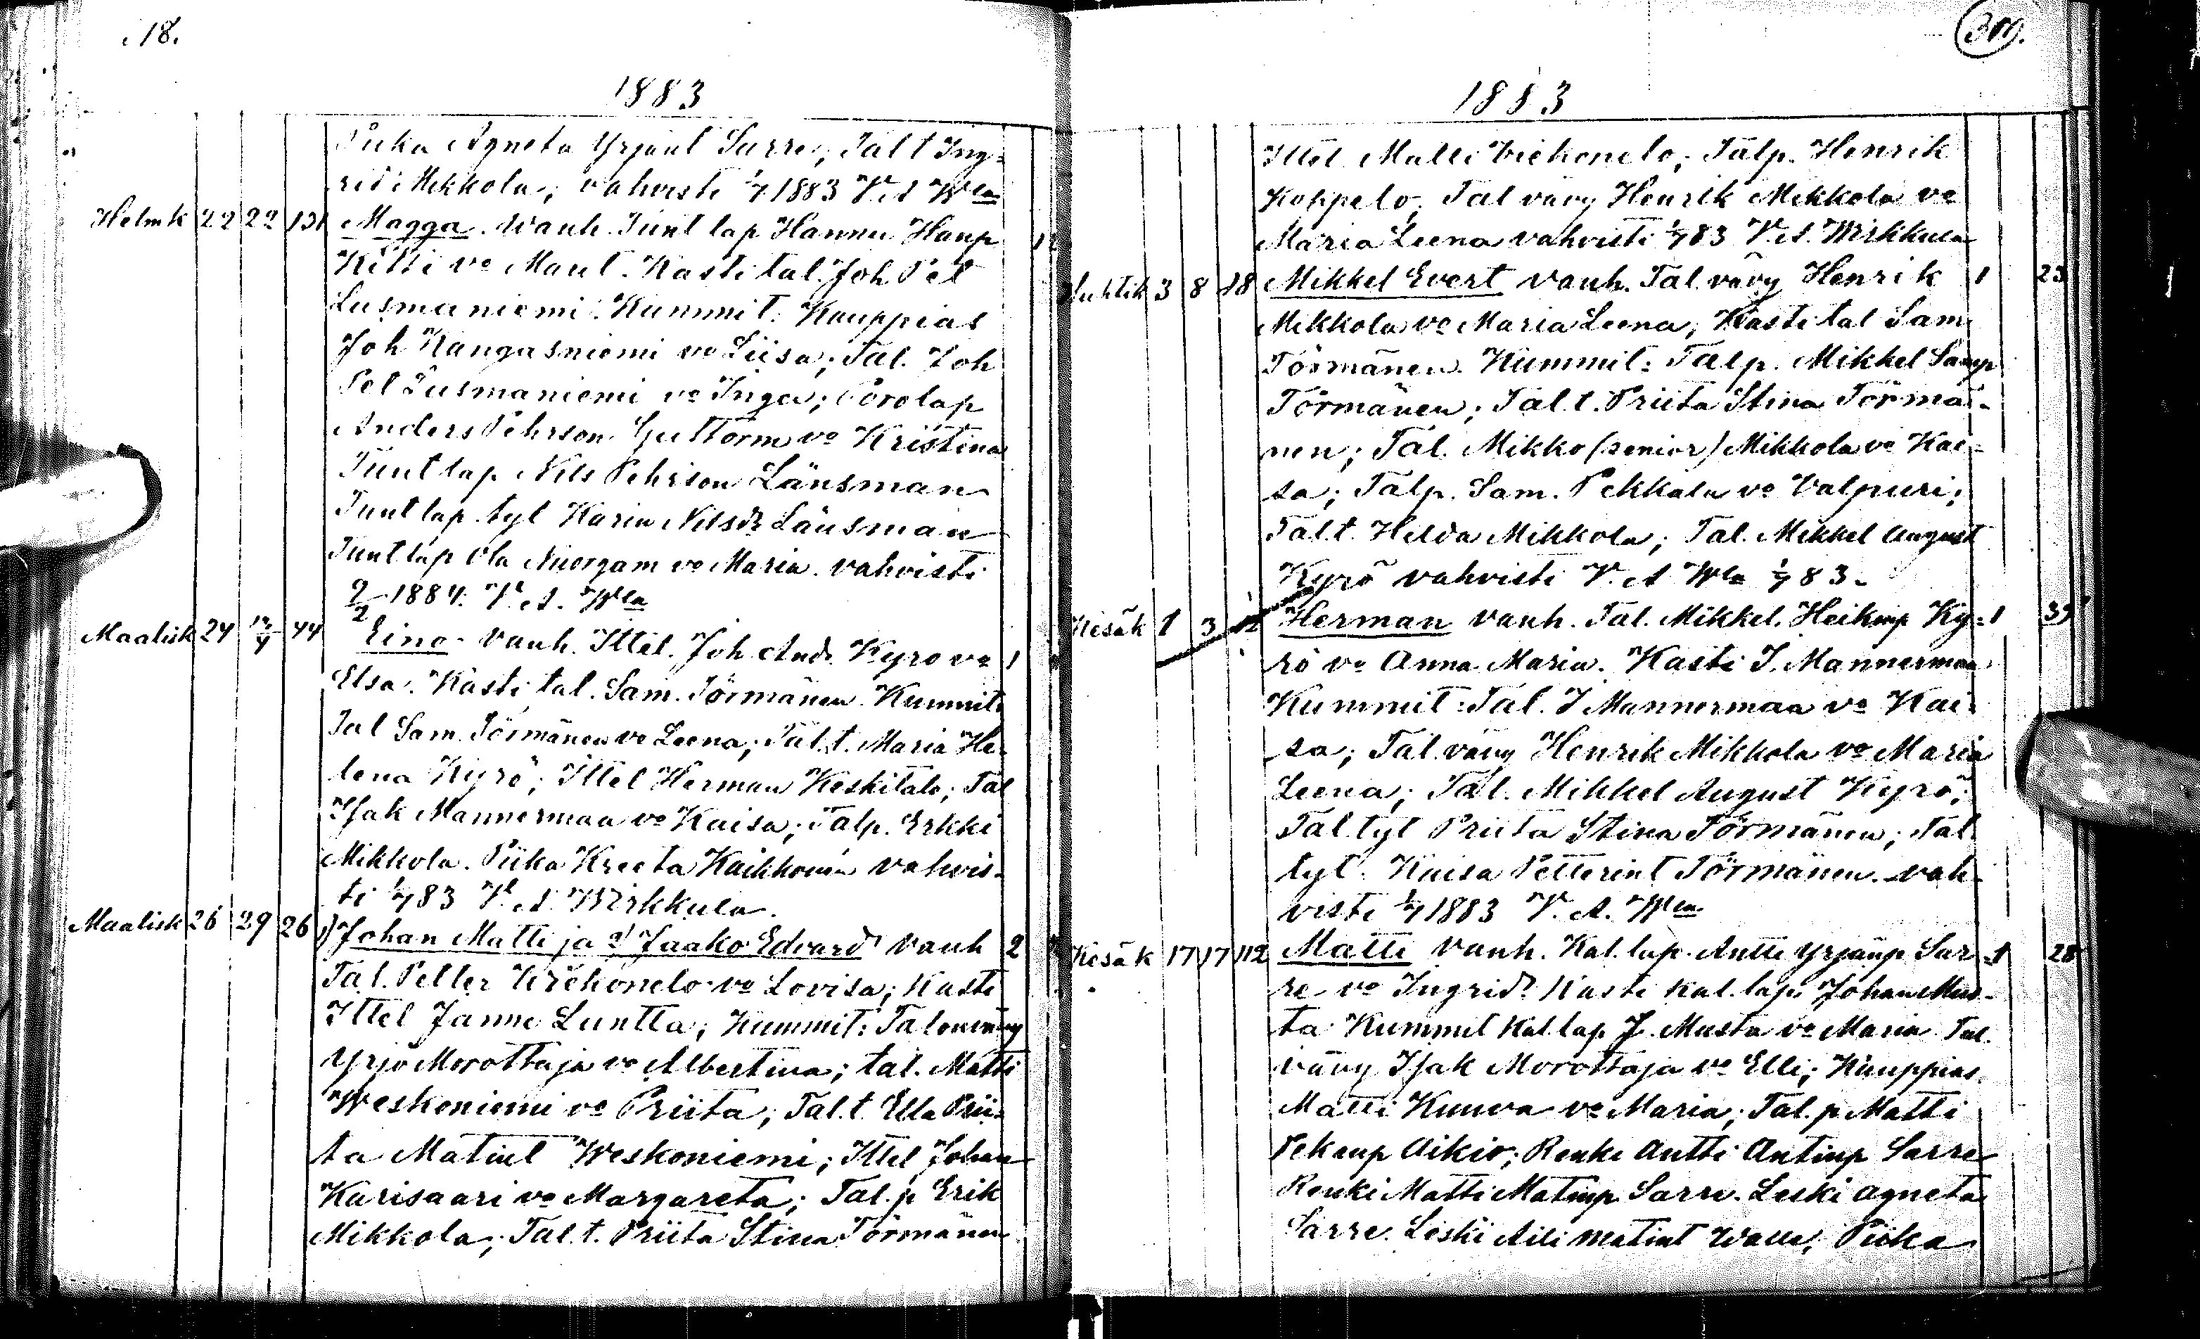 18.
1883
Piika Agneta Yrjänt Sarre; Tal t Ing-
rid Mikkola; vahvisti 1/7 1883 V. A Wla
Helmk 22 22 131 Magga. Wanh. Tunt lap Hannu Hanp
Kitti vo Marit. Kasti tal. Joh Pet
Lusmaniemi. Kummit: Kauppias
Joh Kangasniemi vo Liisa; Tal. Joh
Pet Lusmaniemi vo Inga; Porolap
Anders Pehrson Guttorm vo Kristina
Tunt lap Nils Pehrson Länsman
Tunt lap. tyt Karin Nilsdr Länsman
Tunt lap Ola Niorgam vo Maria. vahvisti
2/2 1884. V. A. Wla
Maalisk 24 12/4 44 Eino. vanh. Ittel. Joh. And. Kyrö vo 1
Elsa. Kasti tal. Sam. Törmänen. Kummit:
Tal Sam. Törmänen vo Leena; Tal. t. Maria He-
lena Kyrö; Ittel Herman Keskitalo; Tal
Isak Mannermaa vo Kaisa; Talp. Erkki
Mikkola. Piika Kreeta Kaikkonen vahvis-
ti 1/7 83 V. A. Wirkkula.
Maalisk 26 29 26 1) Johan Matti ja 2) Jaako Edvard vanh 2
Tal. Petter Wiehonelo vo Lovisa; Kasti
Ittel Janne Luntta; Kummit: Talonvävy
Yrjö Morottaja vo Albertina; tal. Matti
Weskoniemi vo Priita; Tal. t. Ella Prii-
ta Matint Weskoniemi; Ittel Johan
Karisaari vo Margareta; Tal. p Erik
Mikkola; Tal. t. Priita Stina Törmänen
309.
1883
Ittel. Matti Viehonelo; Talp. Henrik
Koppelo; Tal vävy Henrik Mikkola vo
Maria Leena vahvisti 1/7 83 V. A. Wirkkula
Huhtik 3 8 18 Mikkel Evert vanh. Tal. vävy Henrik 1 23
Mikkola vo Maria Leena; Kasti tal Sam
Törmänen. Kummit: Talp. Mikkel Samp
Törmänen; Tal. t. Priita Stina Törmä-
nen; Tal. Mikko (senior) Mikkola vo Kai-
sa; Talp. Sam. Pekkala vo Valpuri;
Tal t. Hilda Mikkola; Tal. Mikkel August
Kyrö vahvisti V. A Wla 1/7 83.
Kesäk 1 3 12 Herman vanh. Tal. Mikkel. Heikinp Ky- 1 39
rö vo Anna Maria. Kasti I. Mannermaa
Kummit: Tal. I Mannermaa vo Kai-
sa; Tal. vävy Henrik Mikkola vo Maria
Leena; Tal. Mikkel August Kyrö;
Tal tyt Priita Stina Törmänen; Tal.
tyt. Kaisa Petterint Törmänen. vah-
visti 1/7 1883 V. A. Wla
Kesäk 17 17 112 Matti vanh. Kal. lap. Antti Yrjänp Sar- 1 28
re vo Ingrid. Kasti kal. lap. Johan Mus-
ta. Kummit Kal lap J. Musta vo Maria. Tal.
vävy Isak Morottaja vo Elli; Kauppias
Matti Kuuva vo Maria; Tal. p Matti
Pekanp Aikio; Renki Antti Antinp Sarre
Renki Matti Matinp Sarre. Leski Agneta
Sarre. Leski Aili Matint Walle; Piika